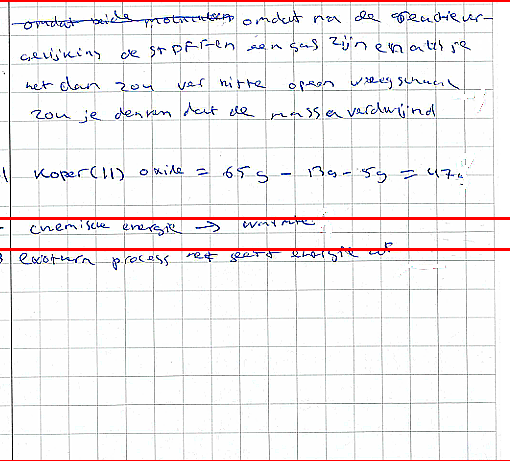 omdat beide moleculen omdat na de reactiever-
gelijking de stoffen een gas zijn en als je
het dan zou verhitte op een weegschaal
zou je denken dat de massa verdwijnd
1 Koper(II) oxide = 65g - 13g - 5g = 47g
- chemische energie → warmte
3 exotherm process het geeft energie af